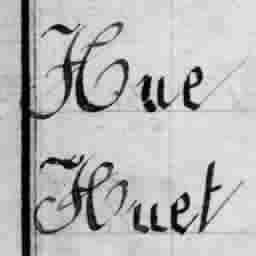 Hue
Huet